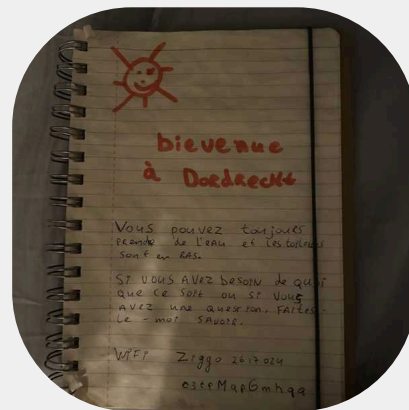 bievenue
à Dordrecht
Vous pouvez toujours
prendre de l'eau et les toilettes
sont en bas.
Si vous avez besoin de quoi
que ce soit ou si vous
avez une question, faites-
le-moi savoir.
WiFi Ziggo